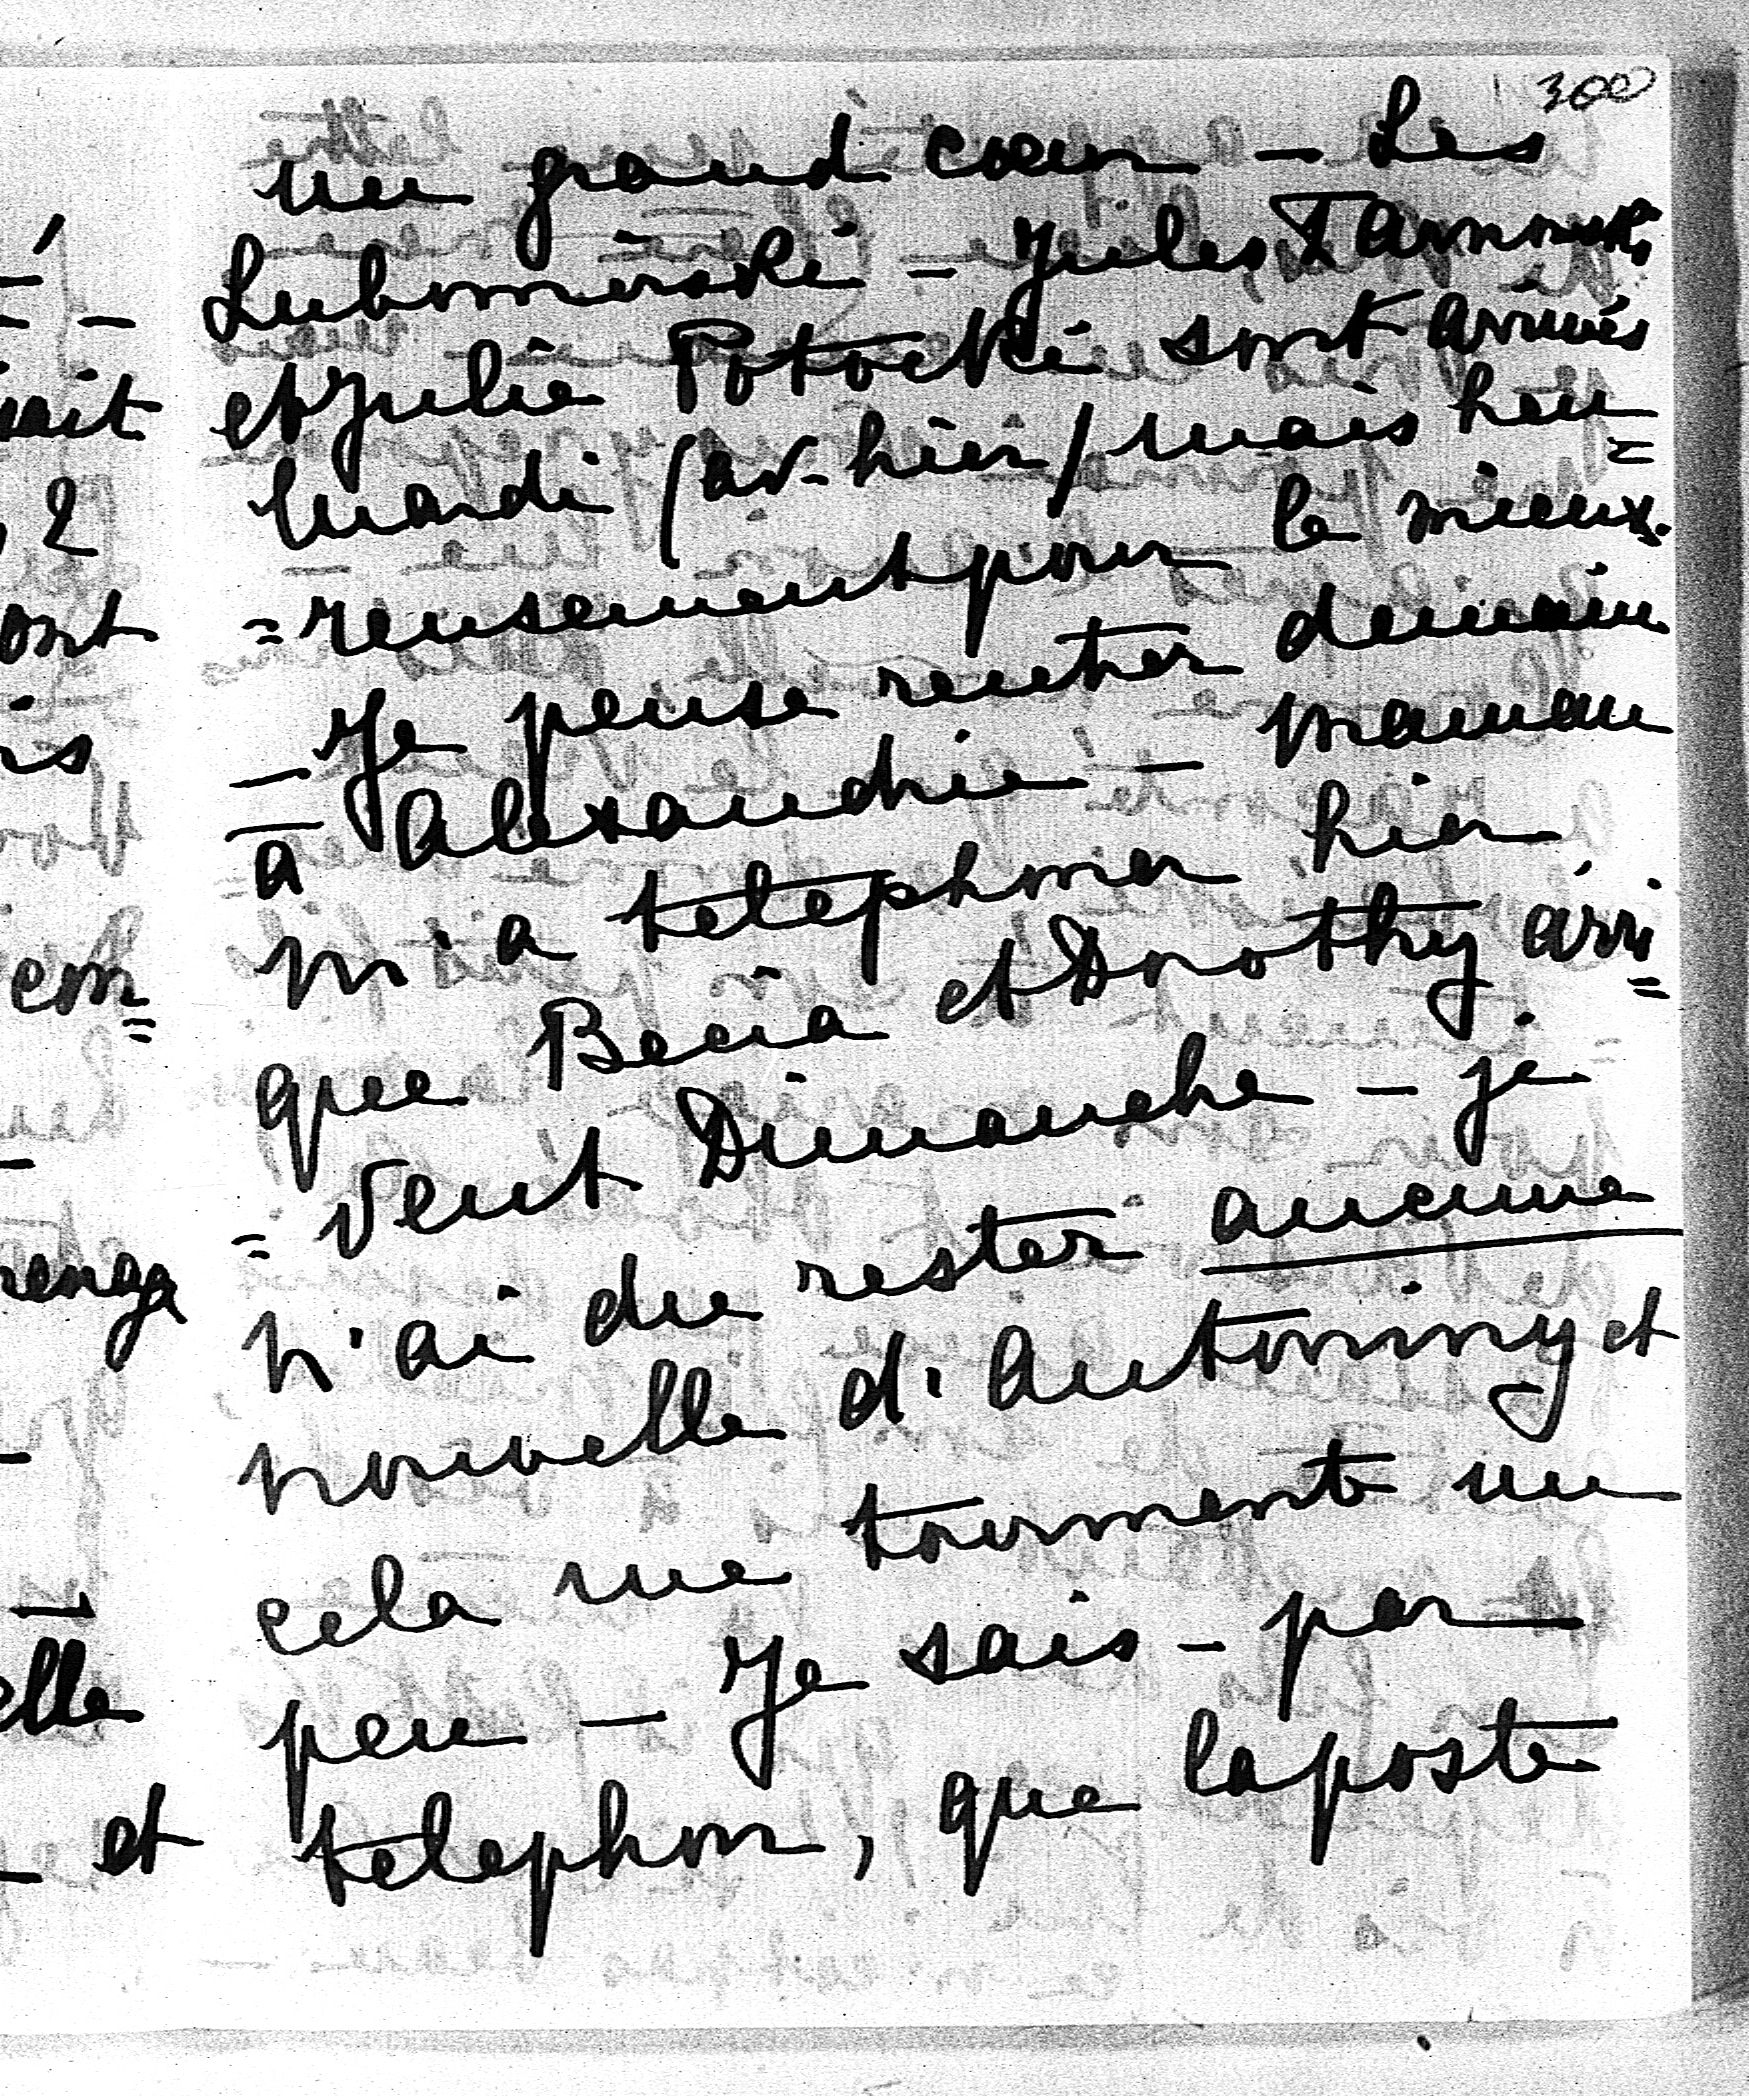 300
un grand cœur - Les
Lubomirski - Jules Tarnowski
et Julie Potocki sont arrivés
mardi (av-hier) mais heu
=reusement pour le mieux.
- Je pense rentrer demain
à Alexandrie - maman
m'a telephoner hier
que Becia et Dorothy arri=
=vent Dimanche - je
n'ai du rester aucune
nouvelle d'Antoniny et
cela me tourmente un
peu - Je sais - par
telephon, que la poste
ont
is
elle
et